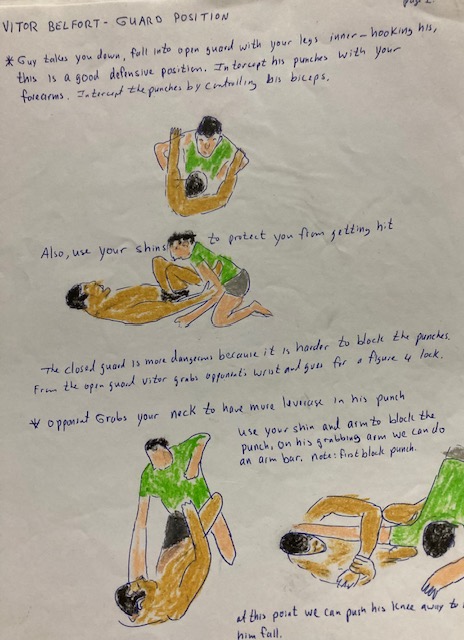 page 2
VITOR BELFORT - GUARD POSITION
* Guy takes you down, fall into open guard with your legs inner-hooking his,
this is a good defensive position. Intercept his punches with your
forearms. Intercept the punches by controlling his biceps.
Also, use your shins to protect you from getting hit
The closed guard is more dangerous because it is harder to block the punches.
From the open guard vitor grabs opponents wrist and goes for a figure 4 lock.
* opponent Grabs your neck to have more leverage in his punch
use your shin and arm to block the
punch, on his grabbing arm we can do
an arm bar. note: first block punch.
at this point we can push his knee away to
him fall.